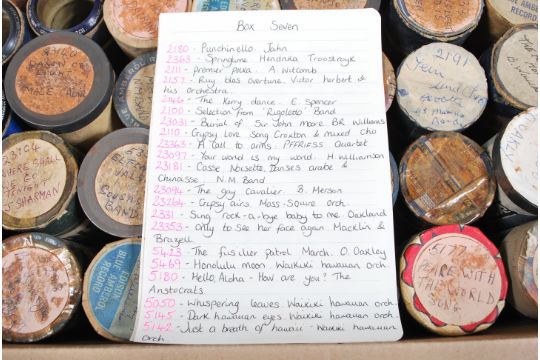 Box Seven
2180 - Punchinello. John
2363 - Springtime Hendrika Troostwyk
2111 - premier polka. A. Witcomb
2157 - Ruy blas overture. Victor herbert &
his orchestra.
2146 - The Kerry dance. E. Spencer
2100 - Selection from 'Rigoletto' Band
23031 - Burial of Sir John Moore. B.R. Williams
2110 - Gypsy Love Song Croxton & mixed cho
23363 - A call to arms. PFFRIESS Quartet
23097 - Your world is my world. H. Williamson
23181 - Casse Noisette, Danses arabe &
Chinaise. N.M. Band
23094 - The gay cavalier. B. Merson
23264 - Gypsy airs Moss-Squire orch.
2331 - Sung rock-a-bye baby to me Oakland
23353 - only to see her face again Macklin &
Brazell
5423 - The fusilier patrol March. O. Oakley
5469 - Honolulu moon. Waikiki hawaiian orch.
5180 - Hello Aloha - How are you? The
Aristocrats.
5050 - Whispering leaves Waikiki hawaiian orch.
5145 - Dark hawaiian eyes Waikiki hawaiian orch.
5142 - Just a breath of hawaii - Waikiki hawaiian
Orch.
MALE CHO
WHERE SHALL
TONIGHT
SHARMAN
WALTZ
BAND
BLUE
AMBEROL
RECORD
2191
5177
FIRE WITH
THE WORLD
SONG